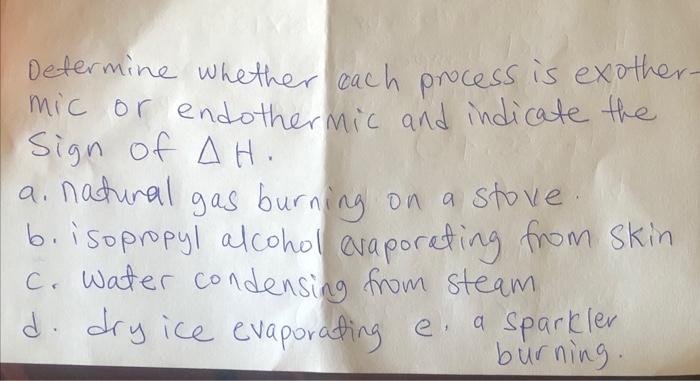 Determine whether each process is exother-
mic or endothermic and indicate the
Sign of ΔH.
a. natural gas burning on a stove.
b. isopropyl alcohol evaporating from skin
c. water condensing from steam
d. dry ice evaporating e. a sparkler
burning.